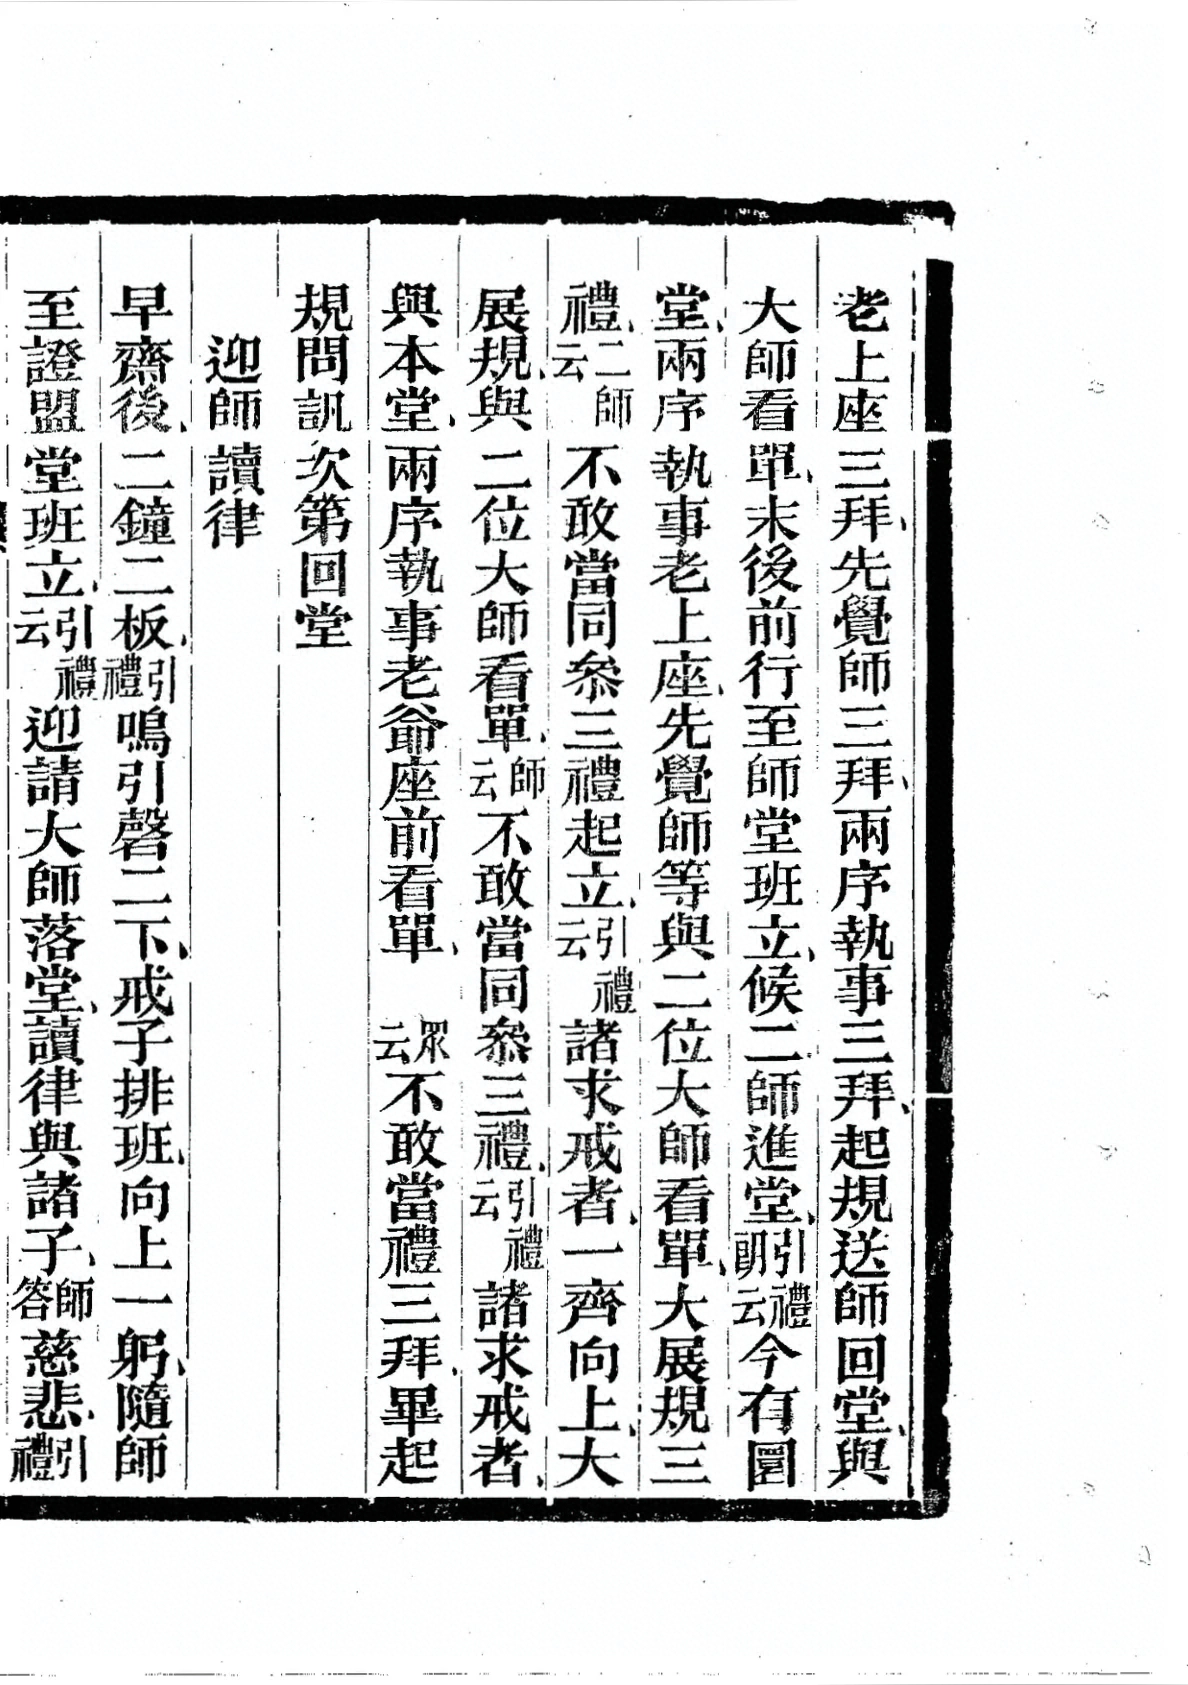 老上座三拜、先覺師三拜、兩序執事三拜、起規送師回堂、與
大師看單、末後前行至師堂班立、候二師進堂、引禮問云今有圜
堂、兩序執事老上座、先覺師等與二位大師看單、大展規三
禮、二師云不敢當同叅三禮起立、引禮云諸求戒者、一齊向上、大
展規、與二位大師看單、師云不敢當同叅三禮、引禮云諸求戒者、
與本堂、兩序執事老爺座前看單、眾云不敢當禮三拜、畢起
規問訊次第回堂
迎師讀律
早齋後、二鐘二板、引禮鳴引磬二下、戒子排班、向上一躬、隨師
至證盟堂班立、引禮云迎請大師落堂、讀律與諸子、師答慈悲、引禮